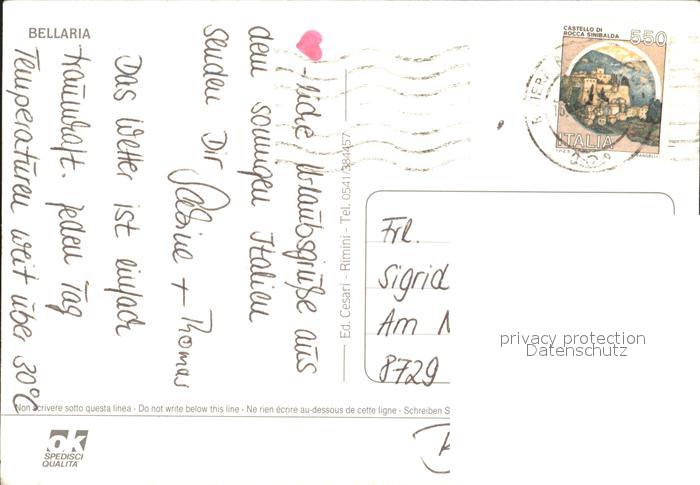 BELLARIA
-liche Urlaubsgrüße aus
dem sonnigen Italien
senden Dir
Sabine + Thomas
Das Wetter ist einfach
traumhaft. jeden Tag
Temperaturen weit über 30°C
Ed. Cesari - Rimini - Tel. 0541/384457
CASTELLO DI
ROCCA SINIBALDA
550
ITALIA
Frl.
Sigrid
Am
8729
privacy protection
Datenschutz
Non scrivere sotto questa linea - Do not write below this line - Ne rien écrire au-dessous de cette ligne - Schreiben S
ok
SPEDISCI
QUALITA'